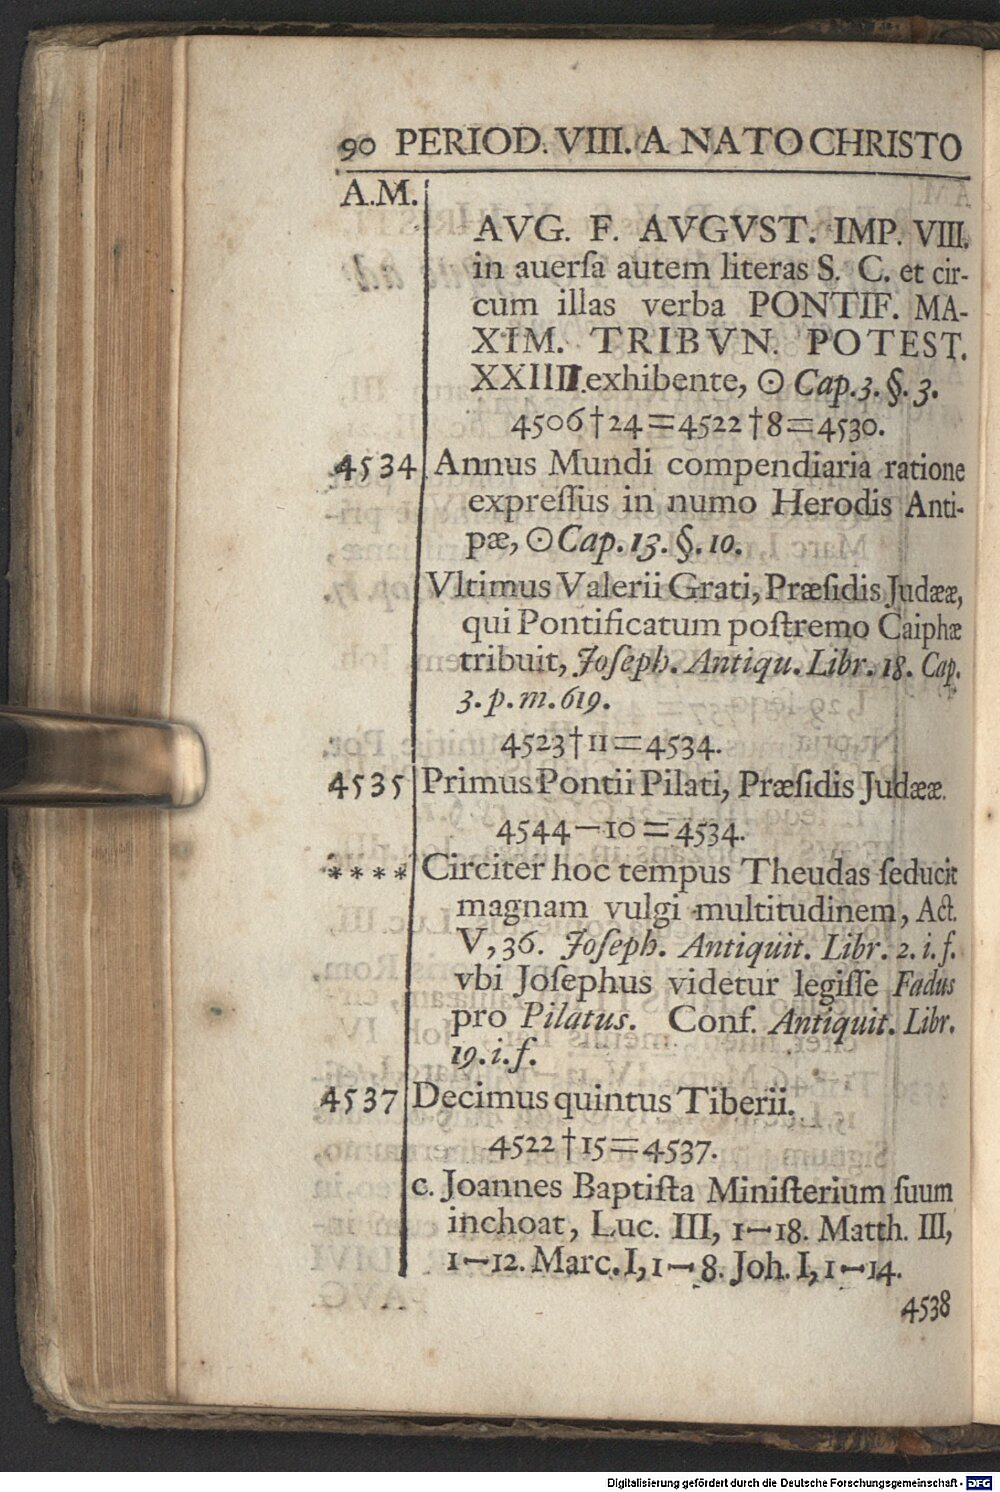 90 PERIOD. VIII. A NATO CHRISTO
A.M.
AVG. F. AVGVST. IMP. VIII.
in auerſa autem literas S. C. et cir-
cum illas verba PONTIF. MA-
XIM. TRIBVN. POTEST.
XXIIII. exhibente, ☉ Cap. 3. §. 3.
4506†24=4522†8=4530.
4534 Annus Mundi compendiaria ratione
expreſſus in numo Herodis Anti-
pæ, ☉ Cap. 13. §. 10.
Vltimus Valerii Grati, Præſidis Judææ,
qui Pontificatum poſtremo Caiphæ
tribuit, Joſeph. Antiqu. Libr. 18. Cap.
3. p. m. 619.
4523†11=4534.
4535 Primus Pontii Pilati, Præſidis Judææ.
4544—10=4534.
**** Circiter hoc tempus Theudas ſeducit
magnam vulgi multitudinem, Act.
V, 36. Joſeph. Antiquit. Libr. 2. i. f.
vbi Joſephus videtur legiſſe Fadus
pro Pilatus. Conf. Antiquit. Libr.
19. i. f.
4537 Decimus quintus Tiberii.
4522†15=4537.
c. Joannes Baptiſta Miniſterium ſuum
inchoat, Luc. III, 1—18. Matth. III,
1—12. Marc. I, 1—8. Joh. I, 1—14.
4538
Digitalisierung gefördert durch die Deutsche Forschungsgemeinschaft - DFG